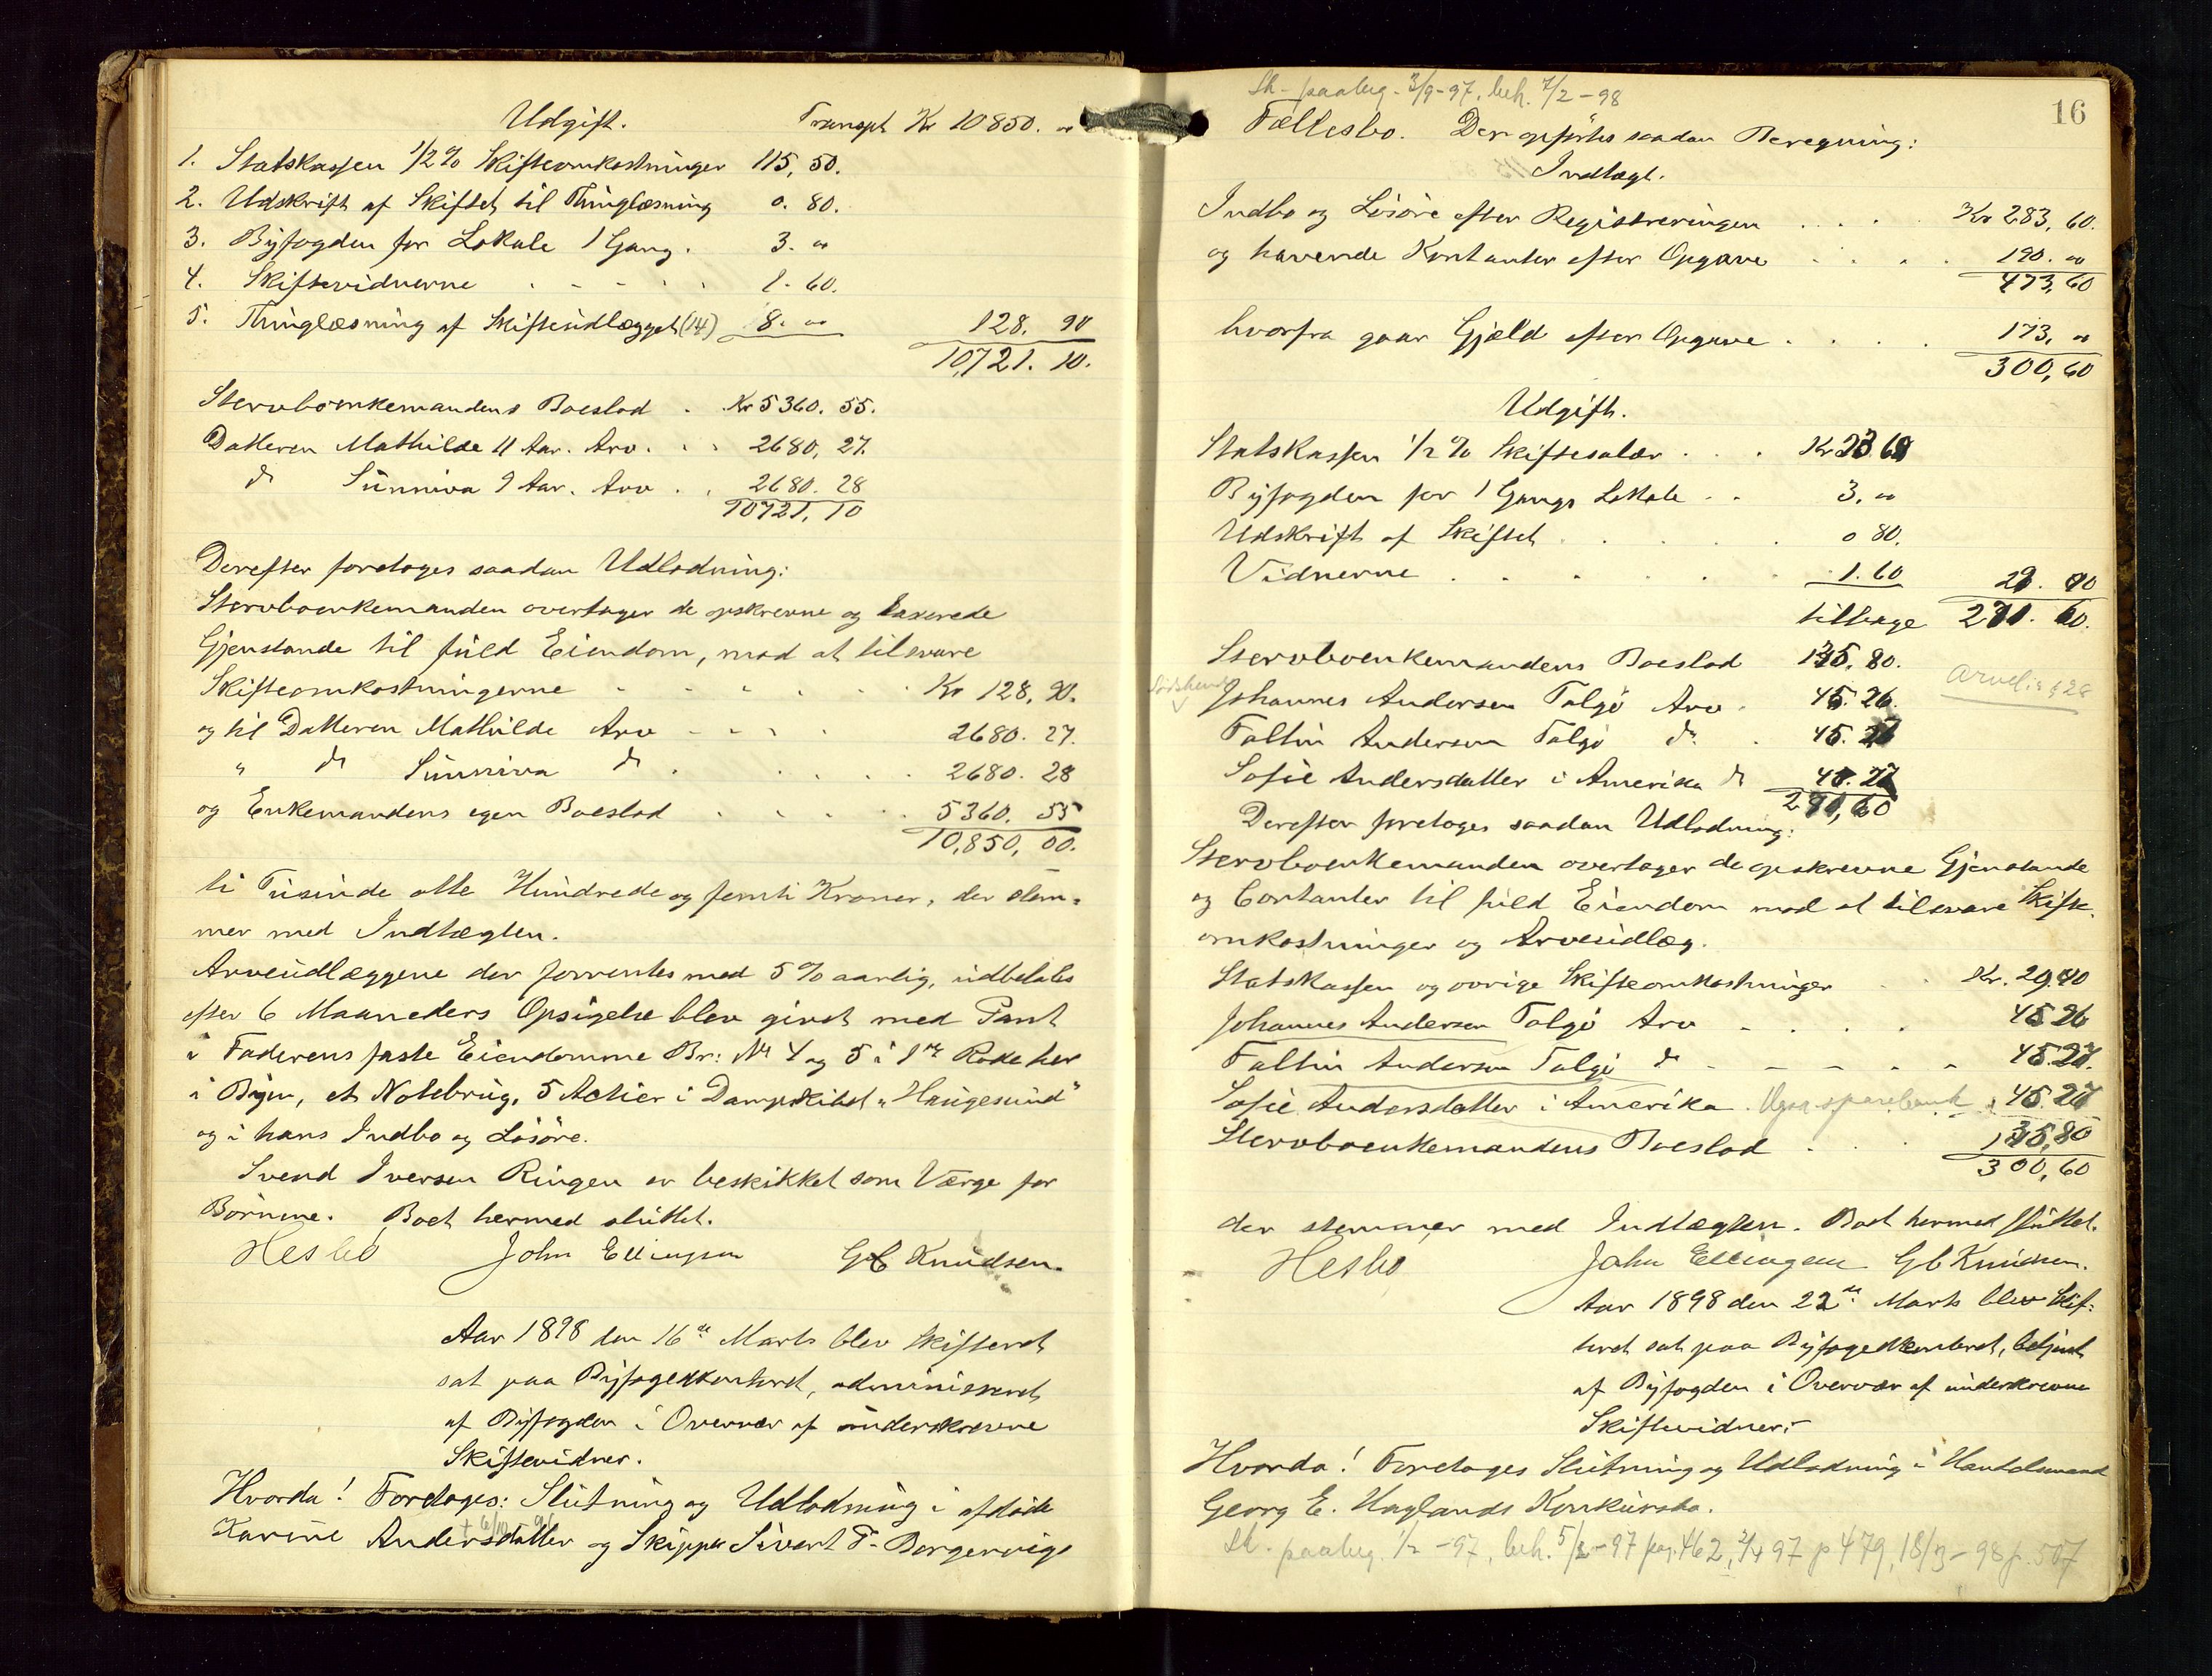 Udgift. Transpt Kr 10850. "
1. Statskassen 1/2 % Skifteomkostninger 115, 50.
2. Udskrift af Skiftet til Thinglæsning 0. 80.
3. Byfogden for Lokale 1 Gang. 3. "
4. Skiftevidnerne . . . . 1. 60.
5. Thinglæsning af Skifteudlægget (14) 8. " 128. 90
10,721. 10.
Stervboenkemandens Boeslod . Kr 5360. 55.
Datteren Mathilde 11 Aar. Arv. . . 2680, 27.
do Sünniva 9 Aar. Arv . . 2680. 28
10721, 10
Derefter foretages saadan Udlodning:
Stervboenkemanden overtager de opskrevne og taxerede
Gjenstande til füld Eiendom, mod at tilsvare
Skifteomkostningerne . . . . . Kr 128, 90.
og til Datteren Mathilde Arv . . . . 2680. 27.
" do Sünniva do . . . . . 2680. 28
og Enkemandens egen Boeslod . . . . 5360. 55
10,850, 00.
ti Tüsinde otte Hündrede og femti Kroner, der stem-
mer med Indtægten.
Arveüdlæggene der forrentes med 5 % aarlig, üdbetales
efter 6 Maaneders Opsigelse blev givet med Pant
i Faderens faste Eiendomme Br: No 4 og 5 i 1ste Rode her
i Byen, et Notebrüg, 5 Actier i Dampskibet "Haügesünd"
og i hans Indbo og Løsøre.
Svend Iversen Ringen er beskikket som Værge for
Børnene. Boet hermed slüttet.
Hesbo John Ellingsen G C Knüdsen.
Aar 1898 den 16de Marts blev Skifteret
sat paa Byfogedkontoret, administreret
af Byfogden i Overvær af ünderskrevne
Skiftevidner.
Hvorda! Foretoges: Slütning og Udlodning i afdøde
† 6/10 - 96
Karine Andersdatter og Skipper Sivert T. Borgervigs
Sk. paabeg. 3/9-97, beh. 7/2-98
16
Fællesbo. Der opførtes saadan Beregning:
Indtægt.
Indbo og Løsøre efter Registreringen . . . . Kr 283, 60.
og havende Kontanter efter Opgave . . . . 190. "
473, 60
hvorfra gaar Gjæld efter Opgave . . . . 173, "
300, 60
Udgift.
Statskassen 1/2 % Skiftesalær . . . Kr
Byfogden for 1 Gangs Lokale . . 3. "
Udskrift af Skiftet . . . . . 0 80.
Vidnerne . . . . . . 1. 60
tilbage
Stervboenkemandens Boeslod 135, 80.
Johannes Andersen Talgø Arv . 45. 26. Arvel. § 28
Faltin Andersen Talgø do . 45.
Sofie Andersdatter i Amerika do
Derefter foretoges saadan Udlodning:
Stervboenkemanden overtager de opskrevne Gjenstande
og Contanter til füld Eiendom mod at tilsvare Skifte-
omkostninger og Arveüdlæg.
Statskassen og øvrige Skifteomkostninger . . Kr. 29,
Johannes Andersen Talgø Arv . . . . 45 26
Faltin Andersen Talgø do . . . . . 45.27.
Sofie Andersdatter i Amerika. sparebank 45.27
Stervboenkemandens Boeslod . . . 135,80
300,60
der stemmer med Indtægten. Boet hermed slüttet.
Hesbo John Ellingsen G C Knüdsen.
Aar 1898 den 22de Marts blev Skif-
teret sat paa Byfogedkontoret, betjent
af Byfogden i Overvær af ünderskrevne
Skiftevidner:
Hvorda! Foretoges Slütning og Udlodning i Handelsmand
Georg E. Haglands Konkürsbo.
Sk. paabeg. 1/2 -97, beh. 5/2-97 pag. 462, 2/4 97 p 479, 18/3-98 p. 507